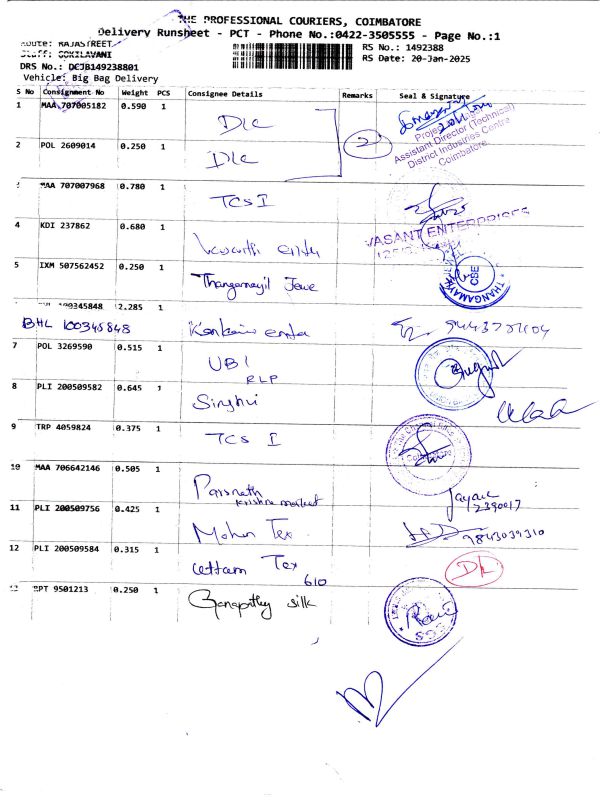 THE PROFESSIONAL COURIERS, COIMBATORE
Delivery Runsheet - PCT - Phone No.:0422-3505555 - Page No.:1
Route: RAJASTREET
Staff: GOKILAVANI
RS No.: 1492388
DRS No.: DCJB149238801
RS Date: 20-Jan-2025
Vehicle: Big Bag Delivery
S No Consignment No Weight PCS Consignee Details Remarks Seal & Signature
1 MAA 707005182 0.590 1 DIC
Assistant Director (Technical)
District Industries Centre
Coimbatore
2 POL 2609014 0.250 1 DIC 2
3 MAA 707007968 0.780 1 TCS I
4 KDI 237862 0.680 1
VASANT ENTERPRISES
5 IXM 507562452 0.250 1 Thangamayil Jewe
CSE
100345848 2.285 1
BHL 100345848
7 POL 3269590 0.515 1 UBI
RLP
8 PLI 200509582 0.645 1 Singhvi
9 TRP 4059824 0.375 1 TCS I
10 MAA 706642146 0.505 1 Parsnath
Krishna market
2390017
11 PLI 200509756 0.425 1 Mohan Tex
9843039310
12 PLI 200509584 0.315 1 Uttam Tex
610
13 RPT 9501213 0.250 1 Ganapathy silk